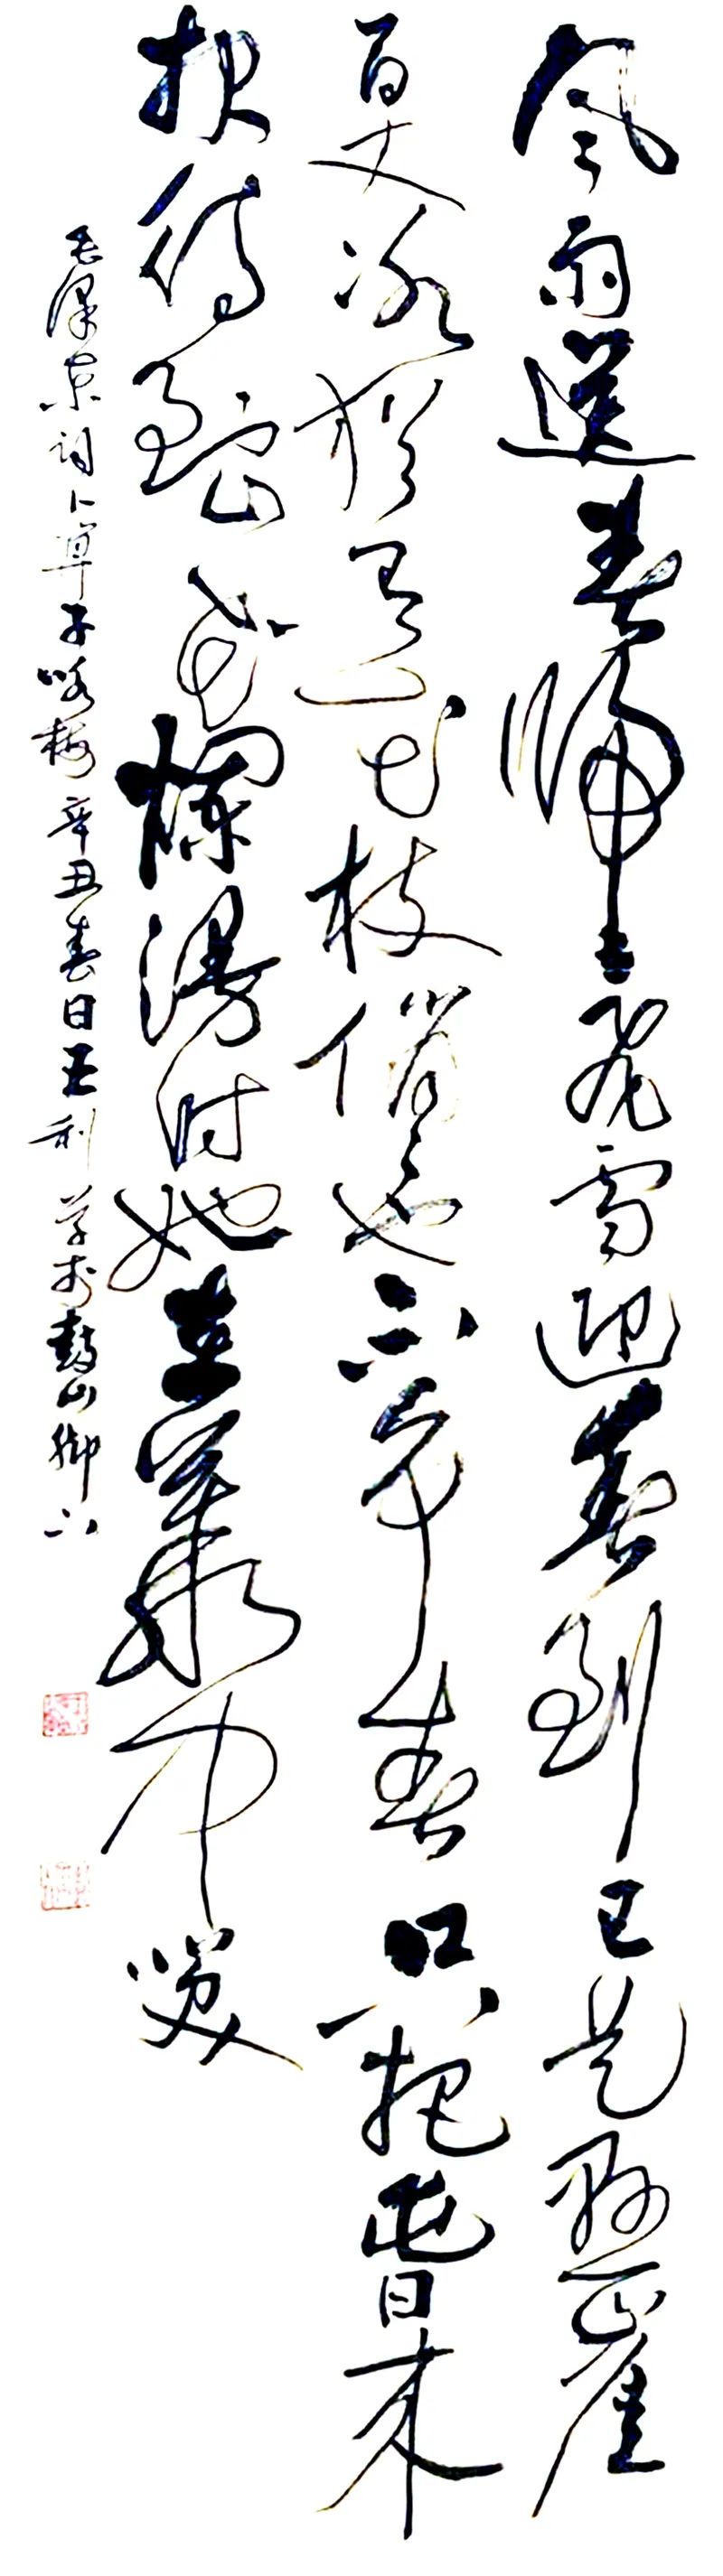 风雨送春归飞雪迎春到已是悬崖
百丈冰犹有花枝俏俏也不争春只把春来
报待到山花烂漫时她在丛中笑
毛泽东词卜算子咏梅辛丑春日王利学书鼓山脚下